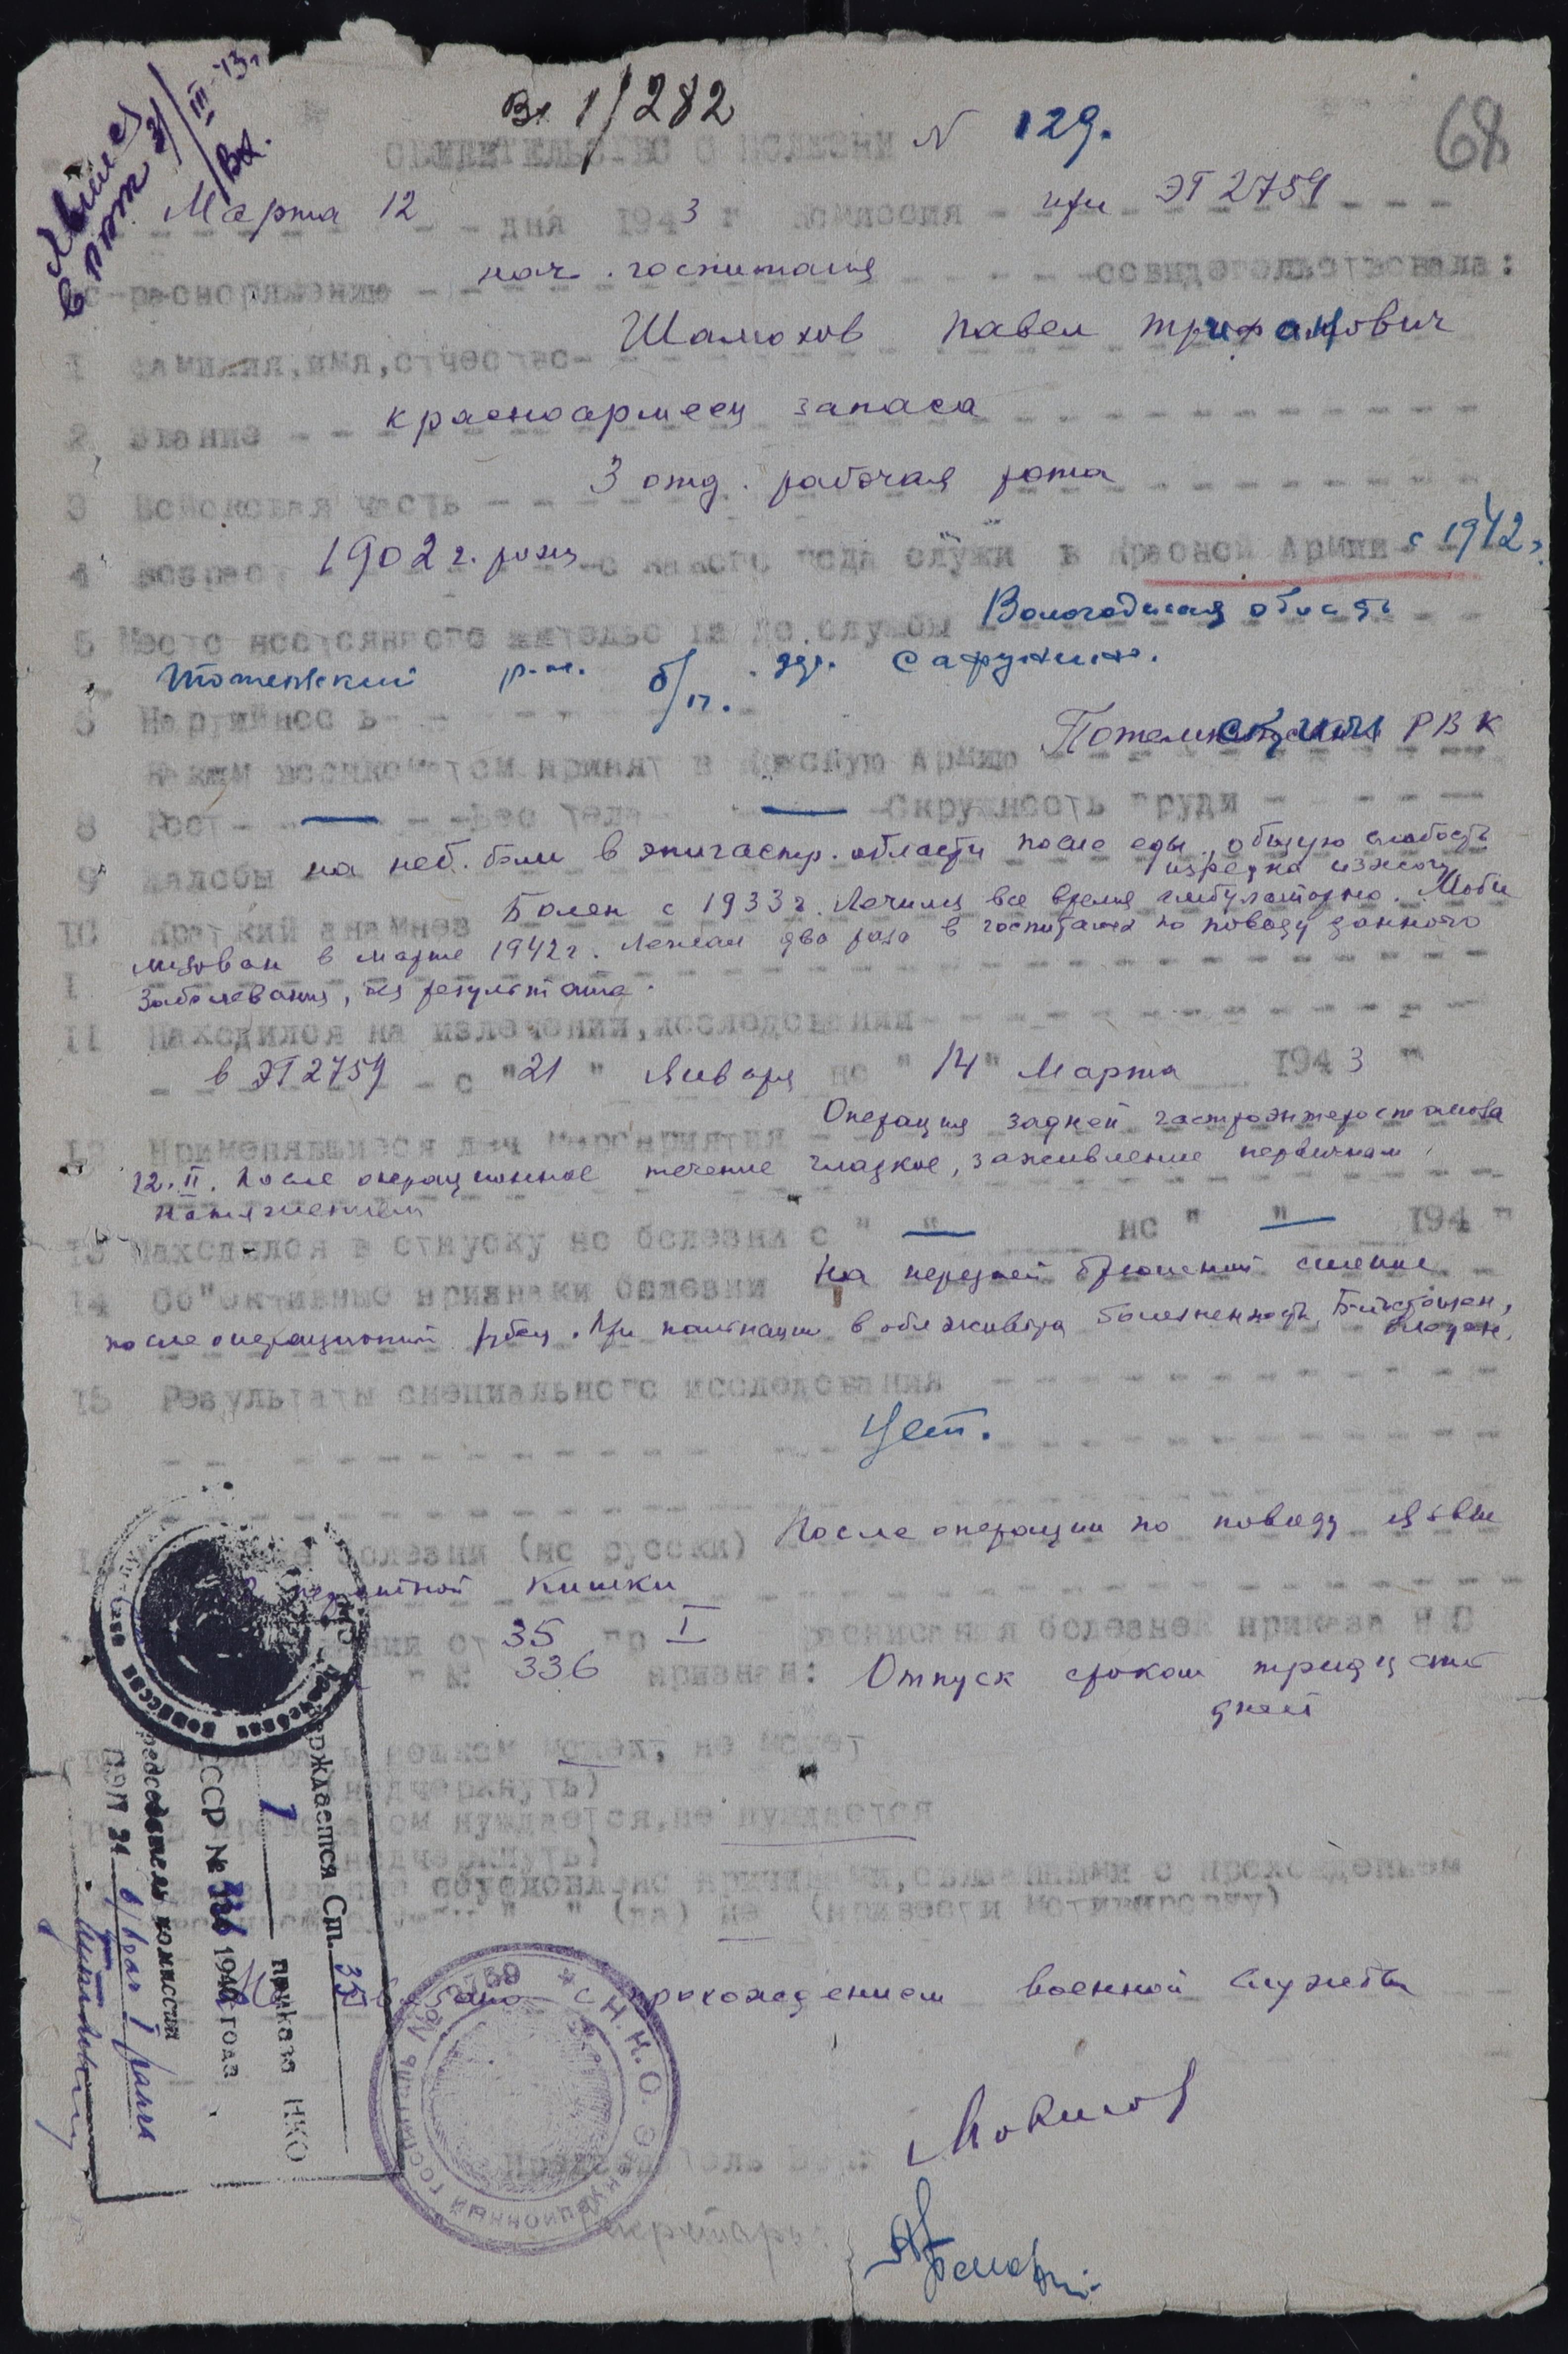 Вх 1/282
68
Явился в РОТ 31/III-43г. Вх.
СВИДЕТЕЛЬСТВО О БОЛЕЗНИ N 129.
Марта 12 дня 1943 г комиссия при ЭГ 2759
по распоряжению нач. госпиталя освидетельствовала:
1 Фамилия, имя, отчество Шамохов Павел Трифанович
2 звание красноармеец запаса
3 Войсковая часть 3 отд. рабочая рота
4 возраст 1902 г. рожд с какого года служи в Красной Армии с 1942 г.
5 Место постоянного жительства до службы Вологодская область
Тотемский р-н. дер. Сафунино.
6 Партийность б/п.
Каким военкоматом принят в Красную Армию РВК
8 Рост — Вес тела — Окружность груди
9 Жалобы на неб. боли в эпигастр. области после еды, общую слабость
изредка изжогу
10 Краткий анамнез Болен с 1933 г. Лечился все время амбулаторно. Моби
лизован в марте 1942 г. Лежал два раза в госпиталях по поводу данного
заболевания, без результата.
11 Находился на излечении, исследовании
в ЭГ 2759 с "21" Января по "14" Марта 1943 "
12 Применявшиеся леч мероприятия Операция задней гастроэнтеростомоза
12.II. После операционное течение гладкое, заживление первичным
натяжением
13 Находился в отпуску по болезни с " — " по " — " 194 "
14 Об"ективные признаки болезни На передней брюшной стенке
после операционный рубец. При пальпации в обл. живота болезненность,
бледен.
15 Результаты специального исследования
Нет.
болезни (по русски) После операции по поводу язвы
кишки
35 гр I расписания болезней приказа НКО
№ 336 признан: Отпуск сроком тридцать
дней
пешком может, не может
(подчеркнуть)
нуждается, не нуждается
(подчеркнуть)
обусловлено причинами, связанными с прохождением
" " (да) не (привести мотивировку)
с прохождением военной службы
Председатель
Секретарь:
Врачебная комиссия
Утверждается Ст. 35
1 приказа НКО
СССР № 336 1942 года
Председатель комиссии
ПЭП 34 в/врач I ранга
* С.Н.К.О. Эвакуационный госпиталь № 2759